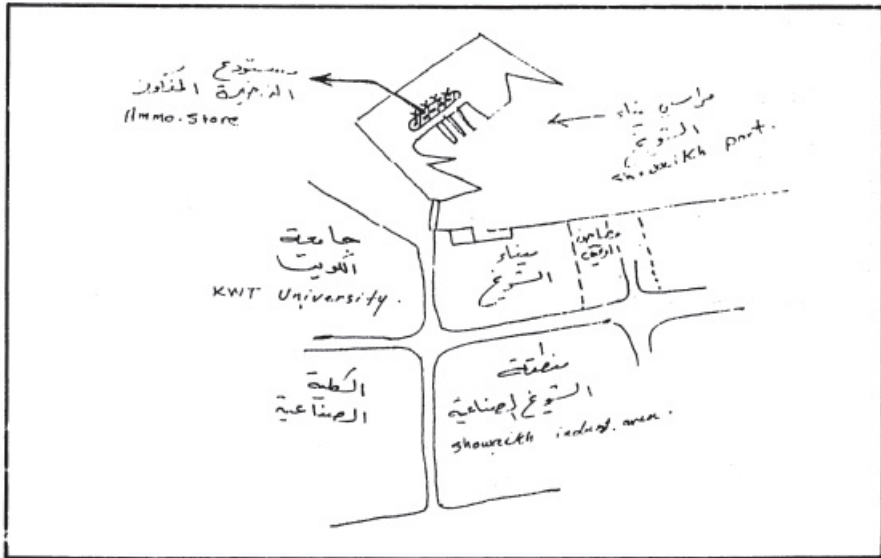 مستودع
الذخيرة
Ammo. Store
مراسي ميناء
الشويخ
showeikh port.
جامعة
الكويت
KWT University.
ميناء
الشويخ
مطاحن
الدقيق
الكلية
الصناعية
منطقة
الشويخ الصناعية
showeikh indust. area.